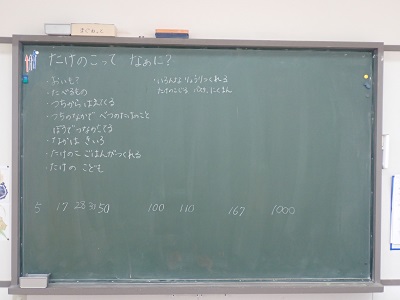 たけのこって なぁに?
・おいも?
・たべるもの
・つちから はえてくる
・つちのなかで べつのたけのこと
ぼうで つながってる
・なかは きいろ
・たけのこ ごはんがつくれる
・たけの こども
・いろんな りょうりつくれる
5 17 28 31 50 100 110 167 1000